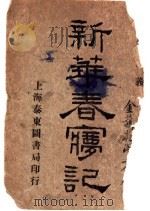 新華春夢記
上海泰東圖書局印行